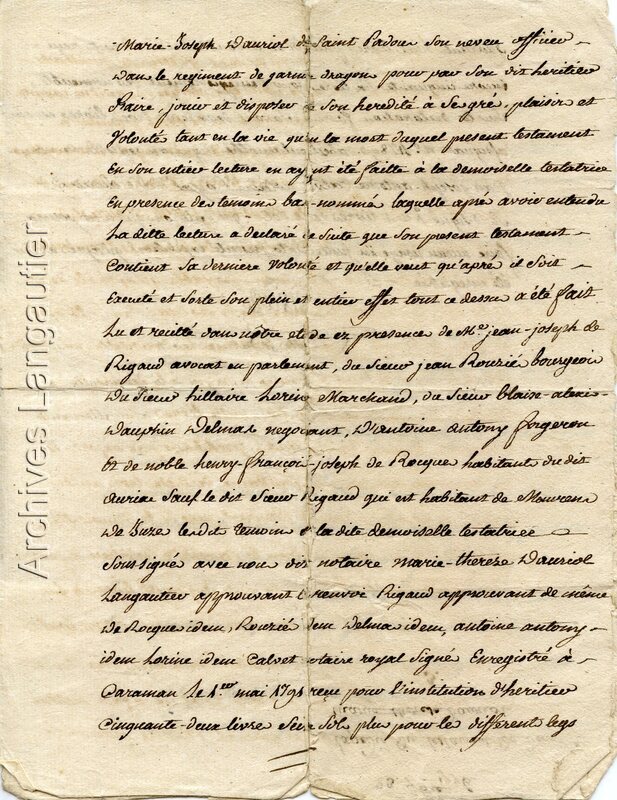 Marie-Joseph Dauriol de Saint Padou son neveu officier
dan le regiment de garni dragon pour par son dit heritier
faire, jouir et disposer de son heredité à Segré, plaisir et
Volonté tant en la vie qu'en la mort duquel present testament
En son entier lecture en ayant été faitte à la demoiselle testatrice
En presence des temoins bas-nommé laquelle apré avoir entendu
La ditte lecture a declaré de suite que son present testament
Contient sa derniere volonté et quelle veut qu'apré il soit
Executé et sorte son plein et entier effet tout ce dessu a été fait
lu et recitté dan nôtre etude ez presence de Me jean-joseph de
Rigaud avocat en parlement, du sieur jean Rouzié bourgeoir
du sieur hillaire Lorine Marchand, du sieur blaise-alexi-
dauphin Delmas negociant, D'antoine antony forgeron
Et de noble henry-françois-joseph de Rocque habitant du dit
auriac sauf le dit sieur Rigaud qui est habitant de Mourens
De Juze le dit temoin et la dite demoiselle testatrice
Soussigné avec nou dit notaire marie-thereze Dauriol
Langautier approuvant le renvoi Rigaud approuvant de même
De Rocque idem, Rouzié idem Delma idem, antoine antony
idem Lorine idem Calvet notaire royal signé Enregistré à
Caraman le 1er mai 1791 reçu pour l'institution d'heritier
Cinquante-deux livre seize sol plu pour le different legs
Archives Langautier